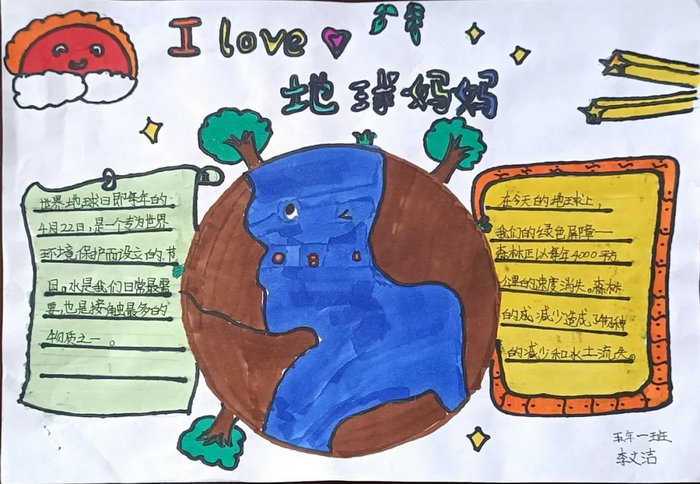 I love
地球妈妈
世界地球日即每年的
4月22日,是一个专为世界
环境保护而设立的节
日。水是我们日常最重
要,也是接触最多的
物质之一。
在今天的地球上,
我们的绿色屏障一
森林正以每年4000平方
公里的速度消失。森林
的减少造成了物种
的减少和水土流失。
五年一班
李文洁